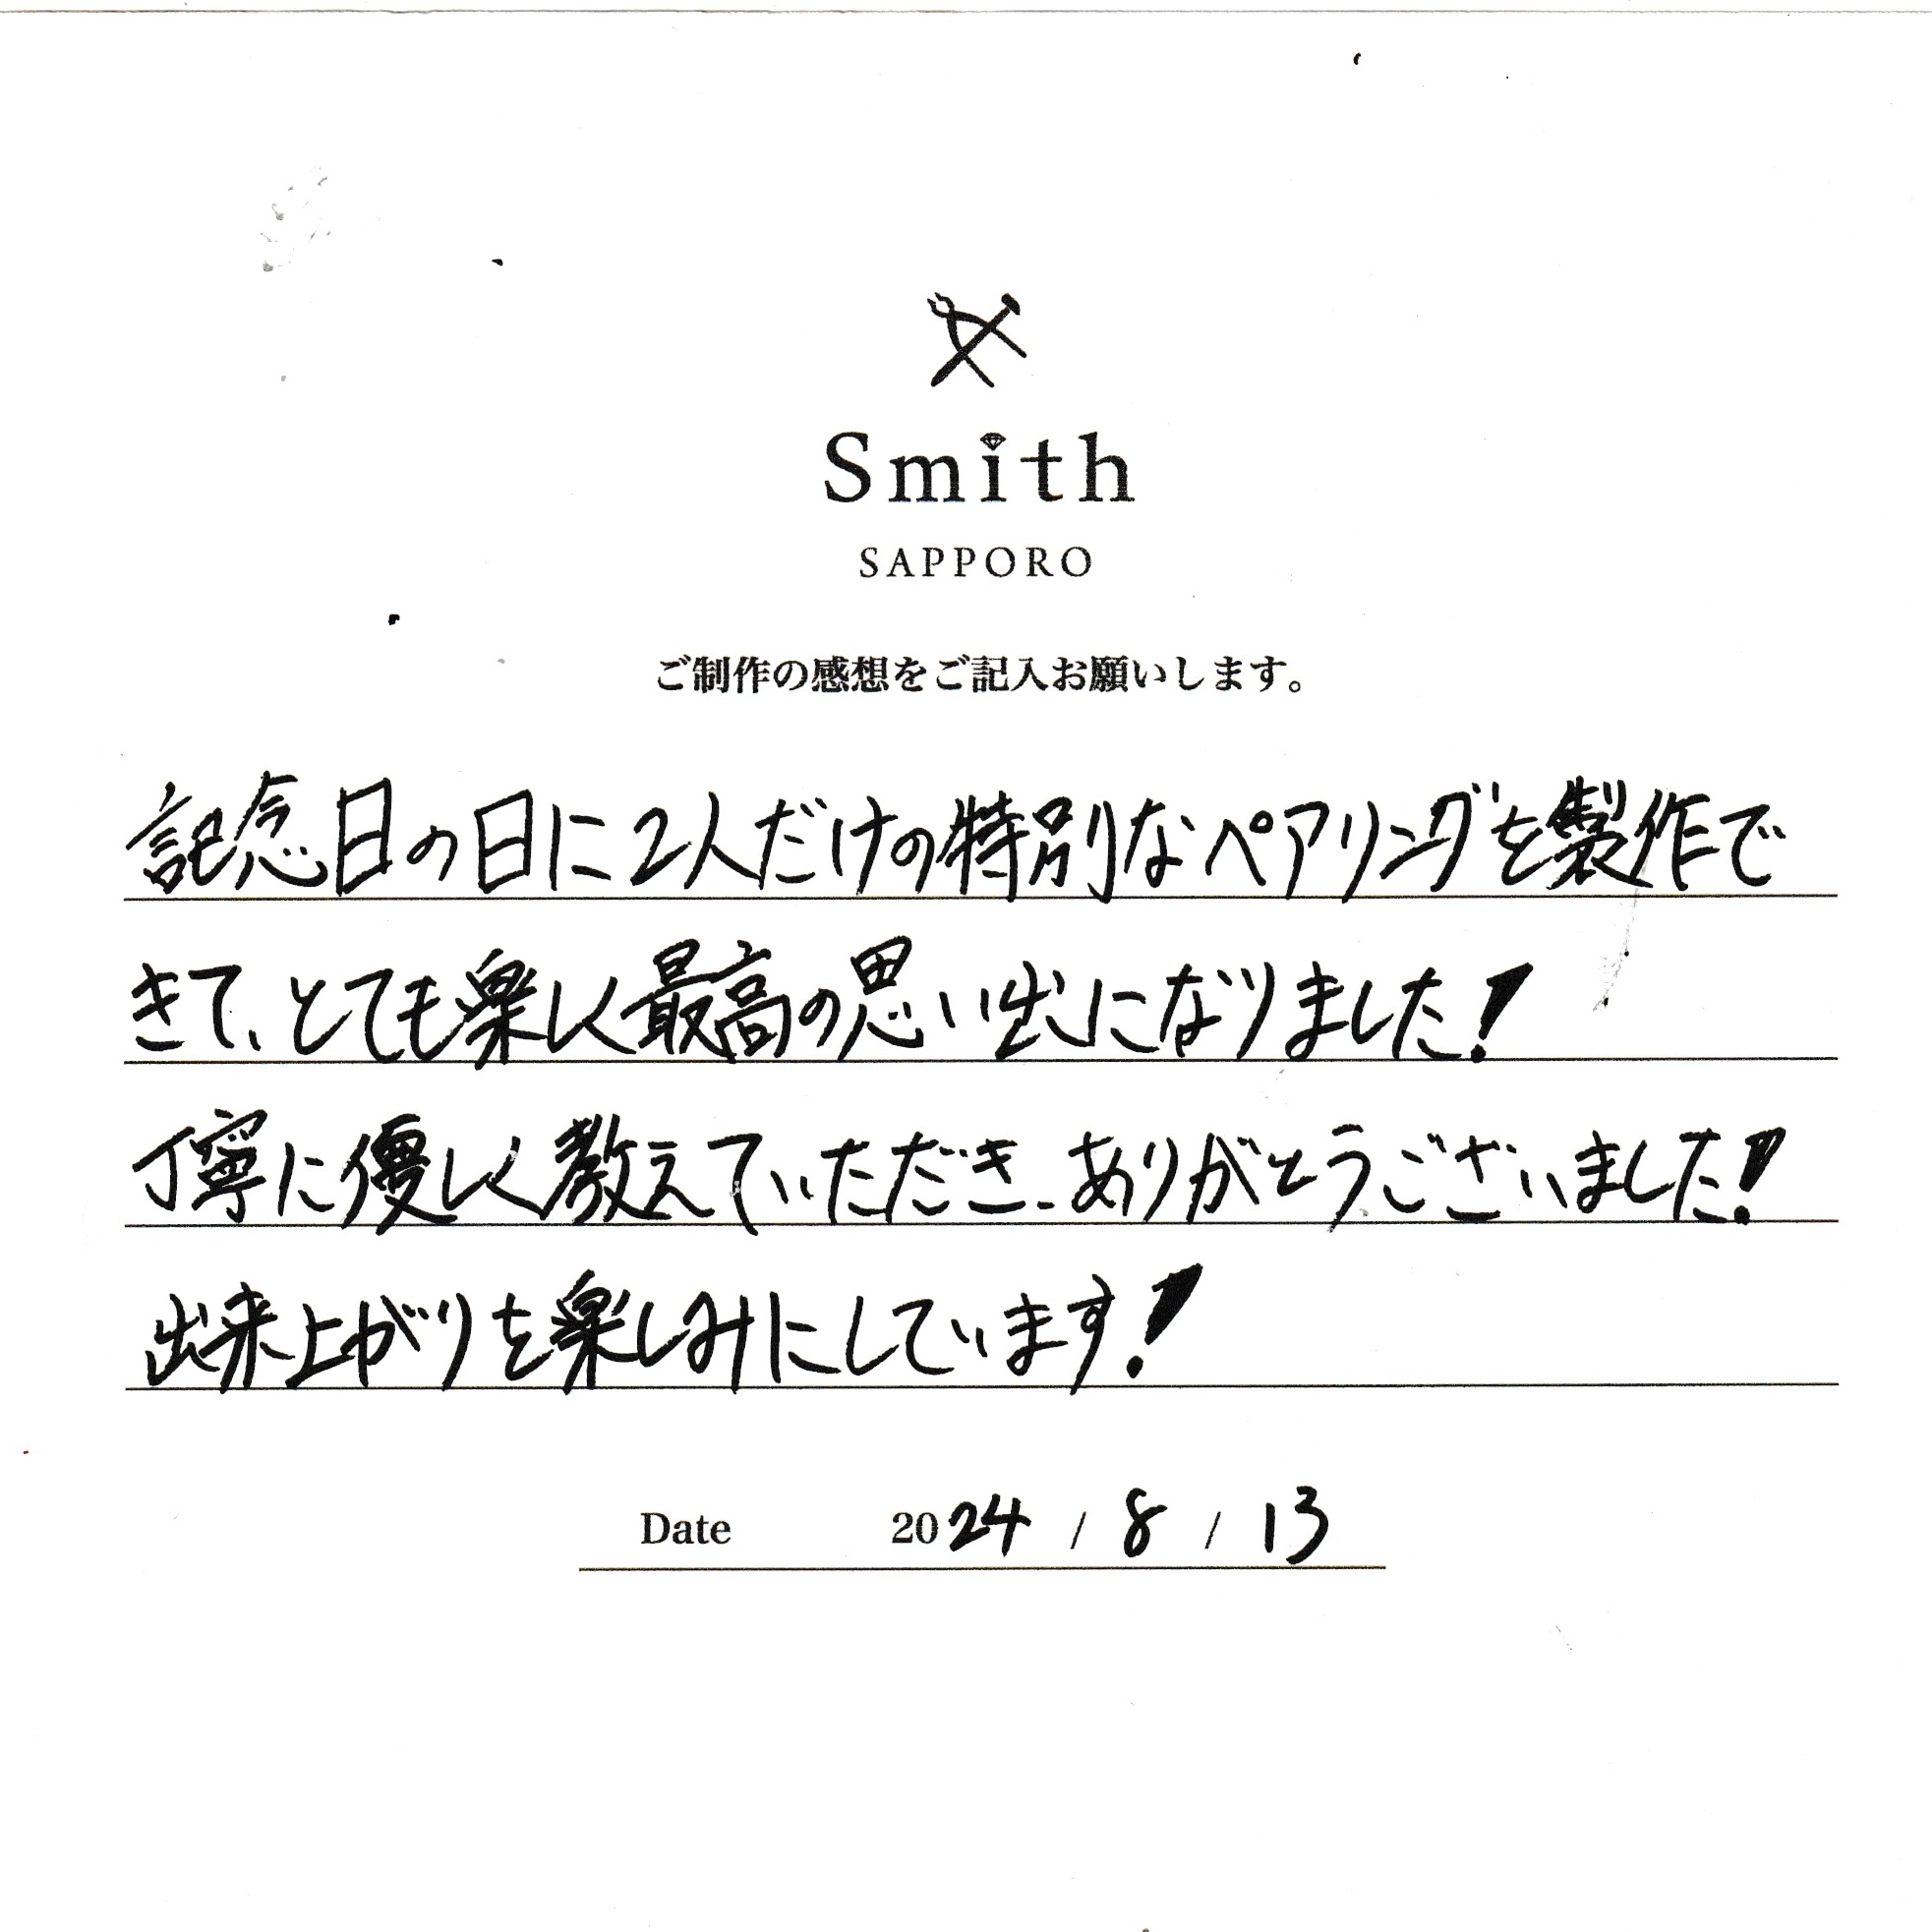 Smith
SAPPORO
ご制作の感想をご記入お願いします。
記念日の日に2人だけの特別なペアリングを製作で
きて、とても楽しく最高の思い出になりました!
丁寧に優しく教えていただき、ありがとうございました!
出来上がりを楽しみにしています!
Date 2024 / 8 / 13